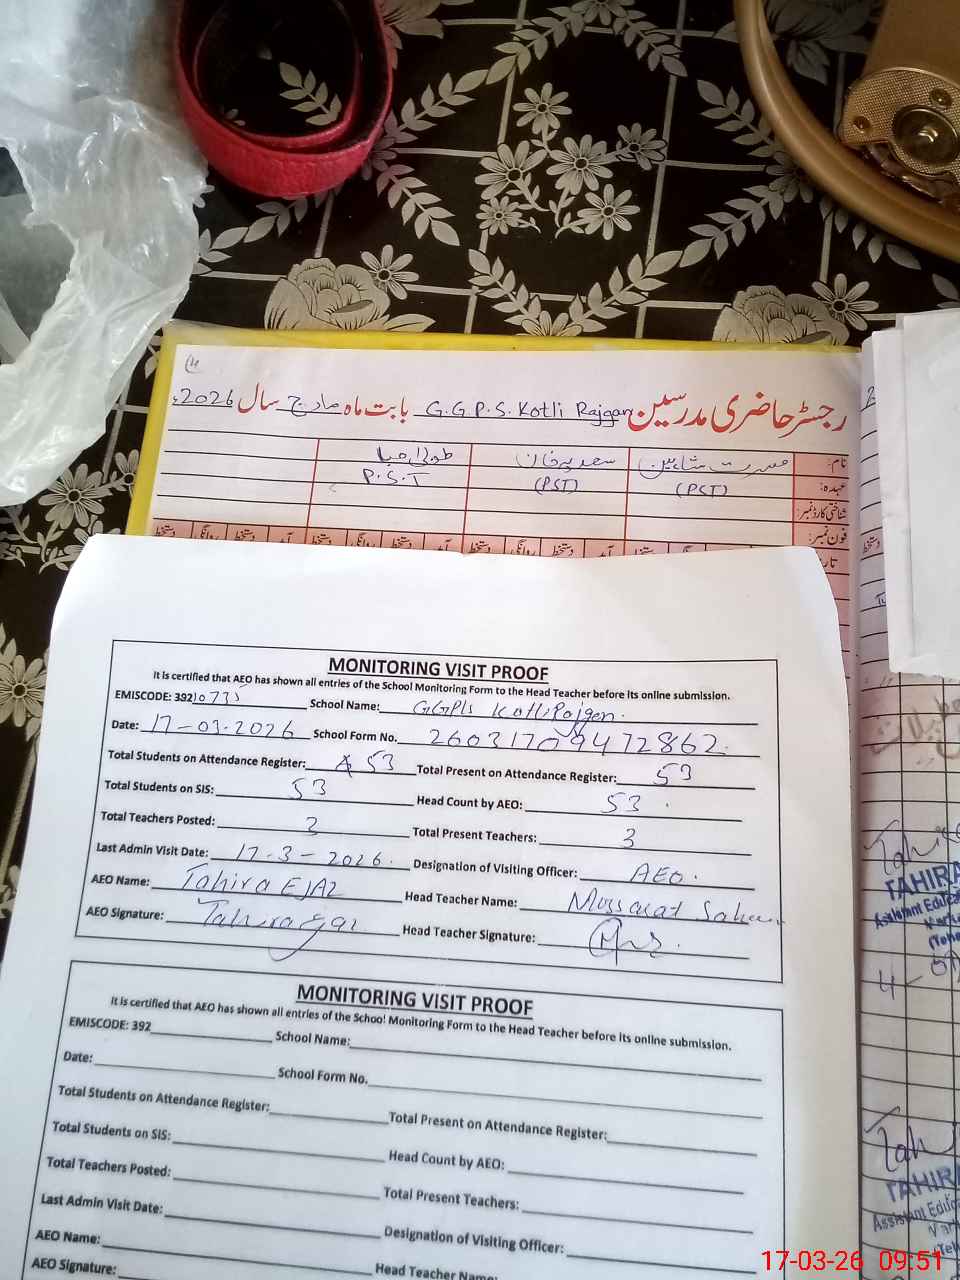 رجسٹر حاضری مدرسین G.G.P.S. Kotli Rajgan بابت ماہ مارچ سال 2026ء
نام: مسرت شاہین سعدیہ خان طوبیٰ
عہدہ: (PST) (PST) P.S.T
شناختی کارڈ نمبر:
فون نمبر:
MONITORING VISIT PROOF
It is certified that AEO has shown all entries of the School Monitoring Form to the Head Teacher before its online submission.
EMISCODE: 39210735 School Name: GGPS Kotli Rajgan.
Date: 17-03-2026 School Form No. 26031709472862.
Total Students on Attendance Register: 53 Total Present on Attendance Register: 53
Total Students on SIS: 53 Head Count by AEO: 53
Total Teachers Posted: 3 Total Present Teachers: 3
Last Admin Visit Date: 17-3-2026. Designation of Visiting Officer: AEO.
AEO Name: Tahira EJAZ Head Teacher Name: Mussarat
AEO Signature: Head Teacher Signature:
MONITORING VISIT PROOF
It is certified that AEO has shown all entries of the School Monitoring Form to the Head Teacher before its online submission.
EMISCODE: 392 School Name:
Date: School Form No.
Total Students on Attendance Register: Total Present on Attendance Register:
Total Students on SIS: Head Count by AEO:
Total Teachers Posted: Total Present Teachers:
Last Admin Visit Date: Designation of Visiting Officer:
AEO Name:
AEO Signature: Head Teacher Name:
TAHIRA
Assistant Educa
TAHIRA
Assistant Educ
17-03-26 09:51